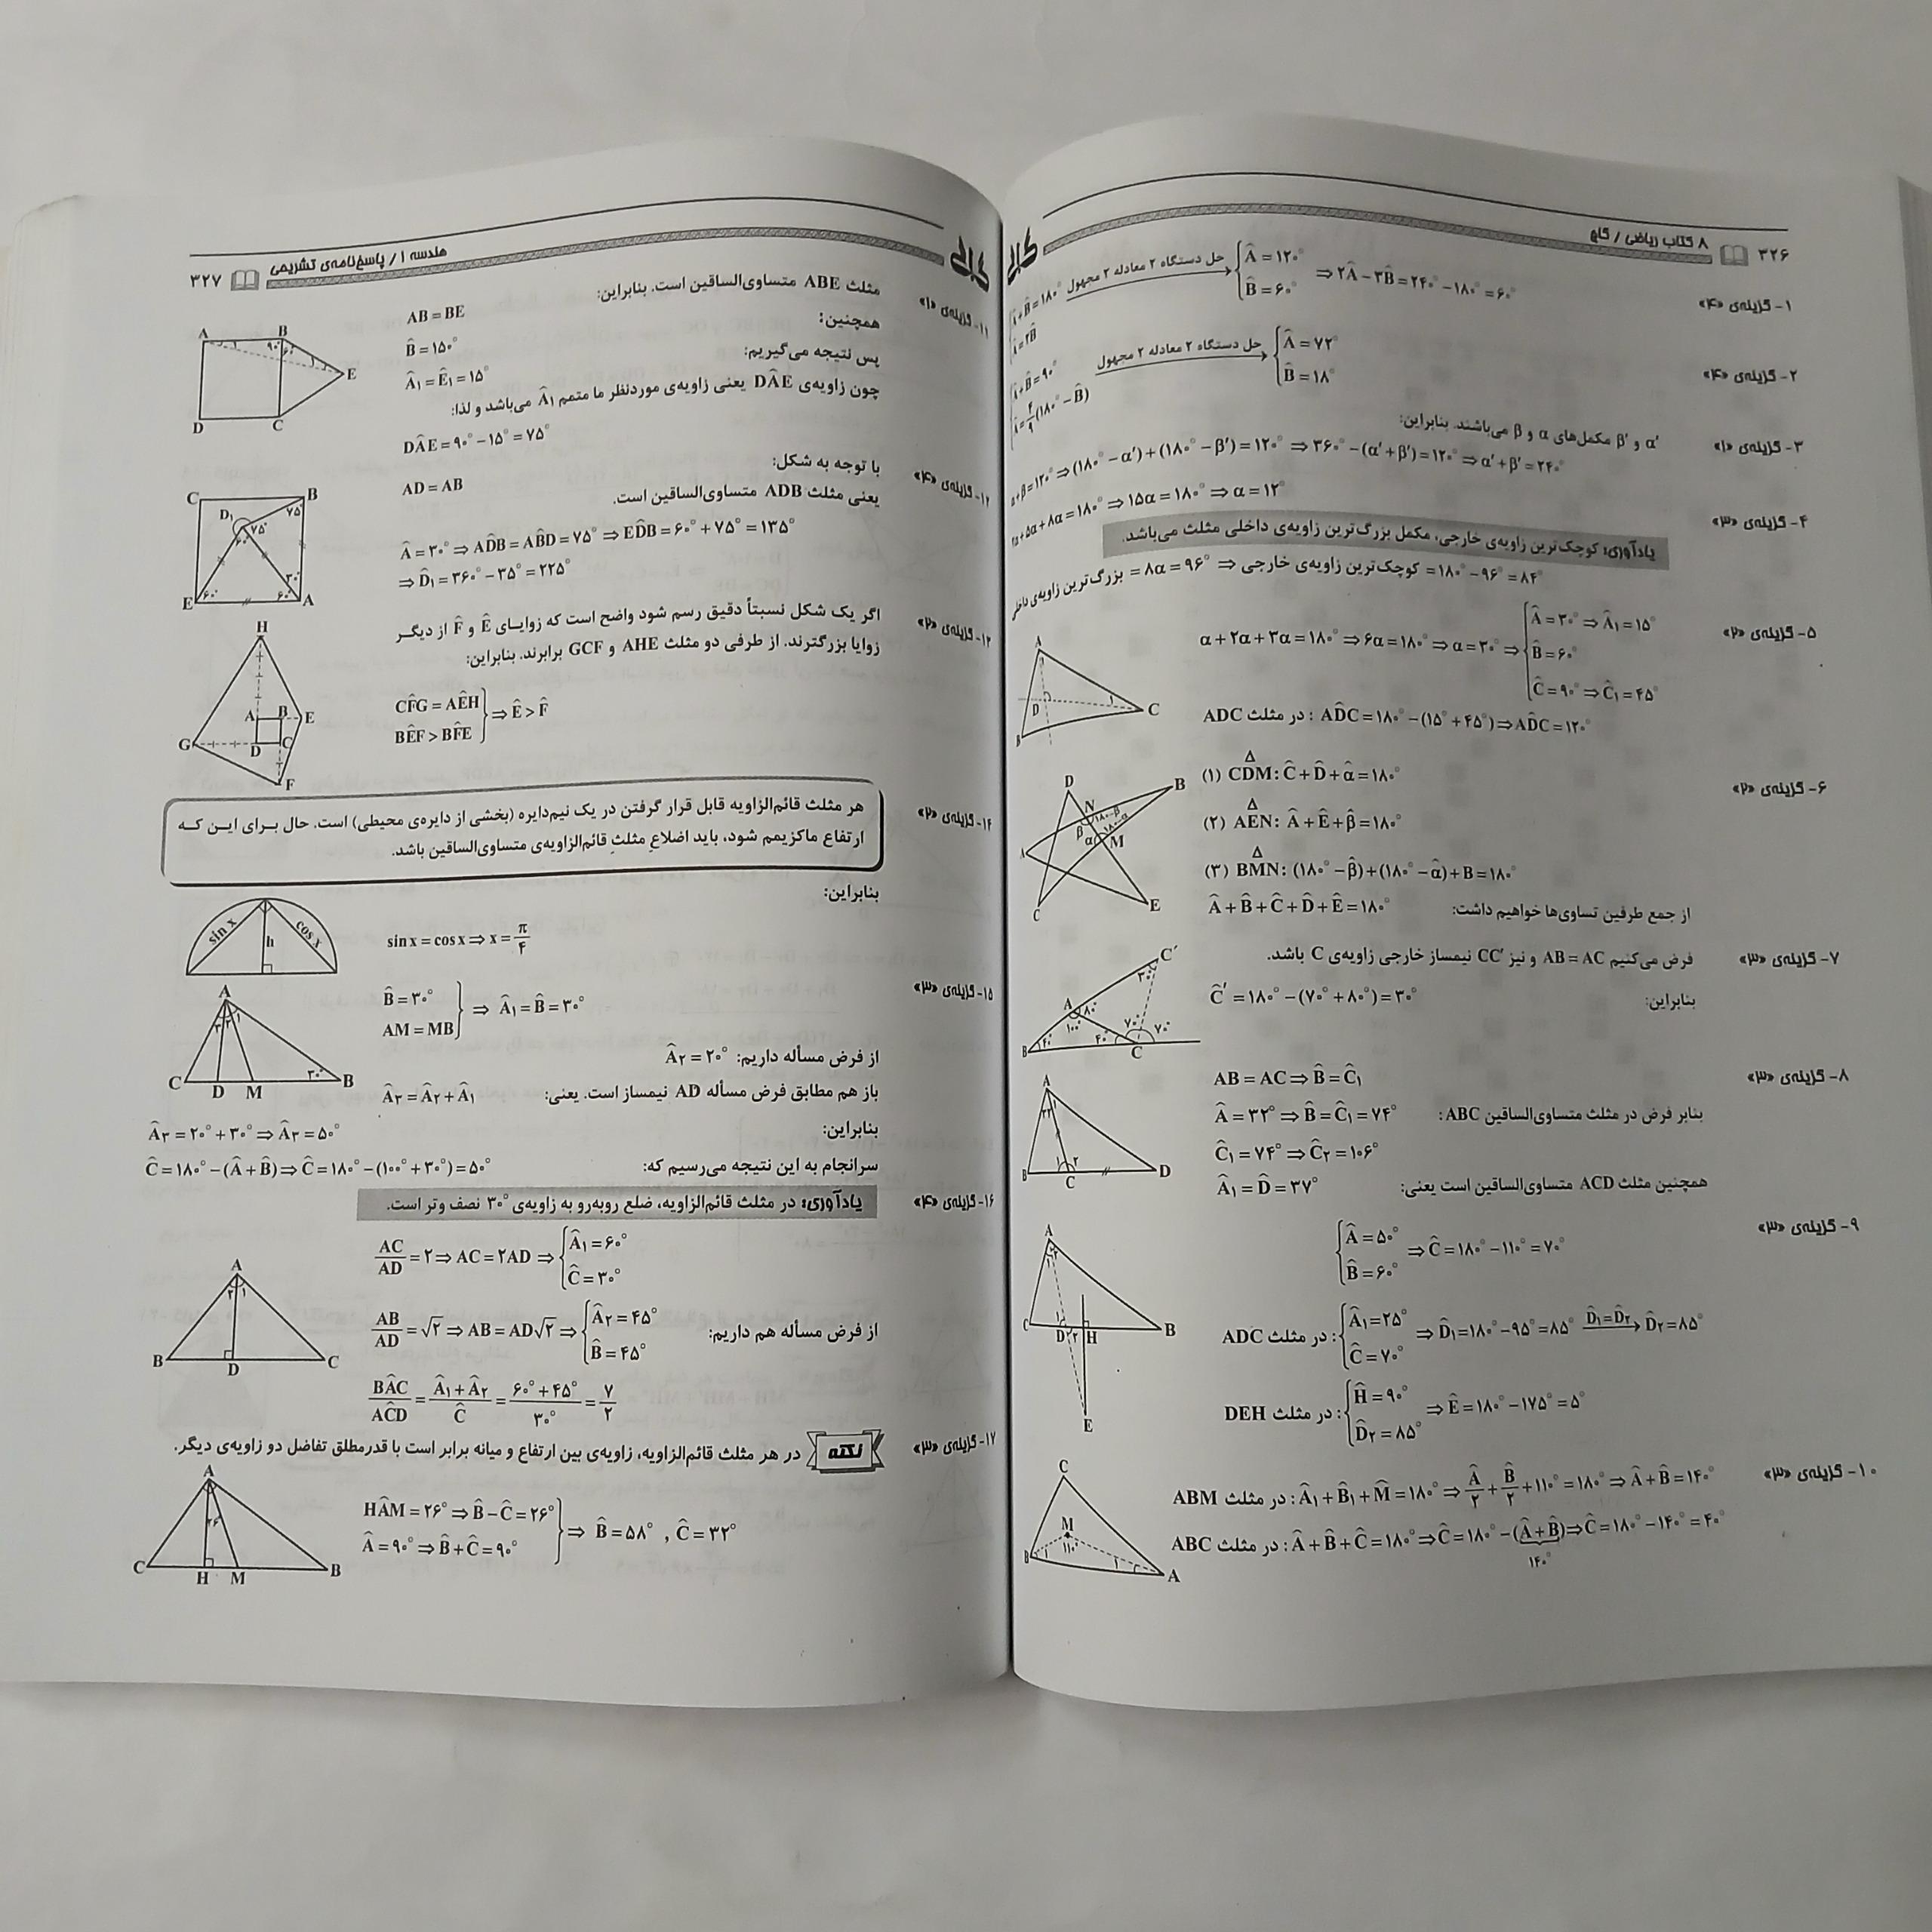 ۳۲۶ ۸ کتاب ریاضی / گاج
۱- گزینه‌ی «۴»
Â + B̂ = ۱۸۰° حل دستگاه ۲ معادله ۲ مجهول → { Â = ۱۲۰° ⇒ ۲Â − ۳B̂ = ۲۴۰° − ۱۸۰° = ۶۰°
Â = ۲B̂ B̂ = ۶۰°
۲- گزینه‌ی «۴»
Â + B̂ = ۹۰° حل دستگاه ۲ معادله ۲ مجهول → { Â = ۷۲°
Â = ۴/۹(۱۸۰° − B̂) B̂ = ۱۸°
۳- گزینه‌ی «۱»
α′ و β′ مکمل‌های α و β می‌باشند. بنابراین:
α + β = ۱۲۰° ⇒ (۱۸۰° − α′) + (۱۸۰° − β′) = ۱۲۰° ⇒ ۳۶۰° − (α′ + β′) = ۱۲۰° ⇒ α′ + β′ = ۲۴۰°
۴- گزینه‌ی «۳»
۲α + ۵α + ۸α = ۱۸۰° ⇒ ۱۵α = ۱۸۰° ⇒ α = ۱۲°
یادآوری: کوچک‌ترین زاویه‌ی خارجی، مکمل بزرگ‌ترین زاویه‌ی داخلی مثلث می‌باشد.
بزرگ‌ترین زاویه‌ی داخلی = ۸α = ۹۶° ⇒ کوچک‌ترین زاویه‌ی خارجی = ۱۸۰° − ۹۶° = ۸۴°
۵- گزینه‌ی «۲»
α + ۲α + ۳α = ۱۸۰° ⇒ ۶α = ۱۸۰° ⇒ α = ۳۰° ⇒ { Â = ۳۰° ⇒ Â۱ = ۱۵°
B̂ = ۶۰°
Ĉ = ۹۰° ⇒ Ĉ۱ = ۴۵°
در مثلث ADC : AD̂C = ۱۸۰° − (۱۵° + ۴۵°) ⇒ AD̂C = ۱۲۰°
A ۱ D ۱ C B
۶- گزینه‌ی «۲»
(۱) CDM: Ĉ + D̂ + α̂ = ۱۸۰°
(۲) AEN: Â + Ê + β̂ = ۱۸۰°
(۳) BMN: (۱۸۰° − β̂) + (۱۸۰° − α̂) + B = ۱۸۰°
از جمع طرفین تساوی‌ها خواهیم داشت: Â + B̂ + Ĉ + D̂ + Ê = ۱۸۰°
D B N ۱۸۰−β β ۱۸۰−α α M A C E
۷- گزینه‌ی «۳»
فرض می‌کنیم AB = AC و نیز CC′ نیمساز خارجی زاویه‌ی C باشد.
بنابراین: Ĉ′ = ۱۸۰° − (۷۰° + ۸۰°) = ۳۰°
C′ ۳۰° A ۸۰° ۱۰۰° ۷۰° ۷۰° B ۴۰° ۴۰° C
۸- گزینه‌ی «۳»
AB = AC ⇒ B̂ = Ĉ۱
بنابر فرض در مثلث متساوی‌الساقین ABC: Â = ۳۲° ⇒ B̂ = Ĉ۱ = ۷۴°
Ĉ۱ = ۷۴° ⇒ Ĉ۲ = ۱۰۶°
همچنین مثلث ACD متساوی‌الساقین است یعنی: Â۱ = D̂ = ۳۷°
A ۳۲ ۱ B ۱ ۲ C D
۹- گزینه‌ی «۳»
{ Â = ۵۰° ⇒ Ĉ = ۱۸۰° − ۱۱۰° = ۷۰°
B̂ = ۶۰°
در مثلث ADC : { Â۱ = ۲۵° ⇒ D̂۱ = ۱۸۰° − ۹۵° = ۸۵° D̂۱ = D̂۲ → D̂۲ = ۸۵°
Ĉ = ۷۰°
در مثلث DEH : { Ĥ = ۹۰° ⇒ Ê = ۱۸۰° − ۱۷۵° = ۵°
D̂۲ = ۸۵°
A ۱ ۲ C D ۱ ۲ H B E
۱۰- گزینه‌ی «۳»
در مثلث ABM : Â۱ + B̂۱ + M̂ = ۱۸۰° ⇒ Â/۲ + B̂/۲ + ۱۱۰° = ۱۸۰° ⇒ Â + B̂ = ۱۴۰°
در مثلث ABC : Â + B̂ + Ĉ = ۱۸۰° ⇒ Ĉ = ۱۸۰° − (Â + B̂) ⇒ Ĉ = ۱۸۰° − ۱۴۰° = ۴۰°
۱۴۰°
C M ۱۱۰° B ۱ ۱ A
گاج
هندسه ۱ / پاسخ‌نامه‌ی تشریمی ۳۲۷
گاج
۱۱- گزینه‌ی «۱»
مثلث ABE متساوی‌الساقین است. بنابراین:
AB = BE
همچنین: B̂ = ۱۵۰°
پس نتیجه می‌گیریم: Â۱ = Ê۱ = ۱۵°
چون زاویه‌ی DÂE یعنی زاویه‌ی موردنظر ما متمم Â۱ می‌باشد و لذا:
DÂE = ۹۰° − ۱۵° = ۷۵°
A B ۱ ۹۰° ۶۰° ۱ E D C
۱۲- گزینه‌ی «۴»
با توجه به شکل: AD = AB
یعنی مثلث ADB متساوی‌الساقین است.
Â = ۳۰° ⇒ AD̂B = AB̂D = ۷۵° ⇒ ED̂B = ۶۰° + ۷۵° = ۱۳۵°
⇒ D̂۱ = ۳۶۰° − ۳۵° = ۲۲۵°
C B D۱ ۷۵° ۷۵° ۶۰ ۳۰° E ۶۰° ۶۰° A
۱۳- گزینه‌ی «۲»
اگر یک شکل نسبتاً دقیق رسم شود واضح است که زوایـای Ê و F̂ از دیگـر
زوایا بزرگترند. از طرفی دو مثلث AHE و GCF برابرند. بنابراین:
CF̂G = AÊH } ⇒ Ê > F̂
BÊF > BF̂E
H A B E G D C F
۱۴- گزینه‌ی «۲»
هر مثلث قائم‌الزاویه قابل قرار گرفتن در یک نیم‌دایره (بخشی از دایره‌ی محیطی) است. حال بـرای ایـن کـه
ارتفاع ماکزیمم شود، باید اضلاعِ مثلثِ قائم‌الزاویه‌ی متساوی‌الساقین باشد.
بنابراین:
sin x = cos x ⇒ x = π/۴
sin x h cos x
۱۵- گزینه‌ی «۳»
B̂ = ۳۰° } ⇒ Â۱ = B̂ = ۳۰°
AM = MB
از فرض مسأله داریم: Â۲ = ۲۰°
باز هم مطابق فرض مسأله AD نیمساز است. یعنی: Â۳ = Â۲ + Â۱
بنابراین: Â۳ = ۲۰° + ۳۰° ⇒ Â۳ = ۵۰°
سرانجام به این نتیجه می‌رسیم که: Ĉ = ۱۸۰° − (Â + B̂) ⇒ Ĉ = ۱۸۰° − (۱۰۰° + ۳۰°) = ۵۰°
A ۳ ۲ ۱ C D M ۳۰° B
۱۶- گزینه‌ی «۴»
یادآوری: در مثلث قائم‌الزاویه، ضلع روبه‌رو به زاویه‌ی ۳۰° نصف وتر است.
AC/AD = ۲ ⇒ AC = ۲AD ⇒ { Â۱ = ۶۰°
Ĉ = ۳۰°
از فرض مسأله هم داریم: AB/AD = √۲ ⇒ AB = AD√۲ ⇒ { Â۲ = ۴۵°
B̂ = ۴۵°
BÂC/AĈD = (Â۱ + Â۲)/Ĉ = (۶۰° + ۴۵°)/۳۰° = ۷/۲
A ۲ ۱ B D C
۱۷- گزینه‌ی «۳»
نکته در هر مثلث قائم‌الزاویه، زاویه‌ی بین ارتفاع و میانه برابر است با قدرمطلق تفاضل دو زاویه‌ی دیگر.
HÂM = ۲۶° ⇒ B̂ − Ĉ = ۲۶° } ⇒ B̂ = ۵۸° , Ĉ = ۳۲°
Â = ۹۰° ⇒ B̂ + Ĉ = ۹۰°
A ۲۶° C H M B